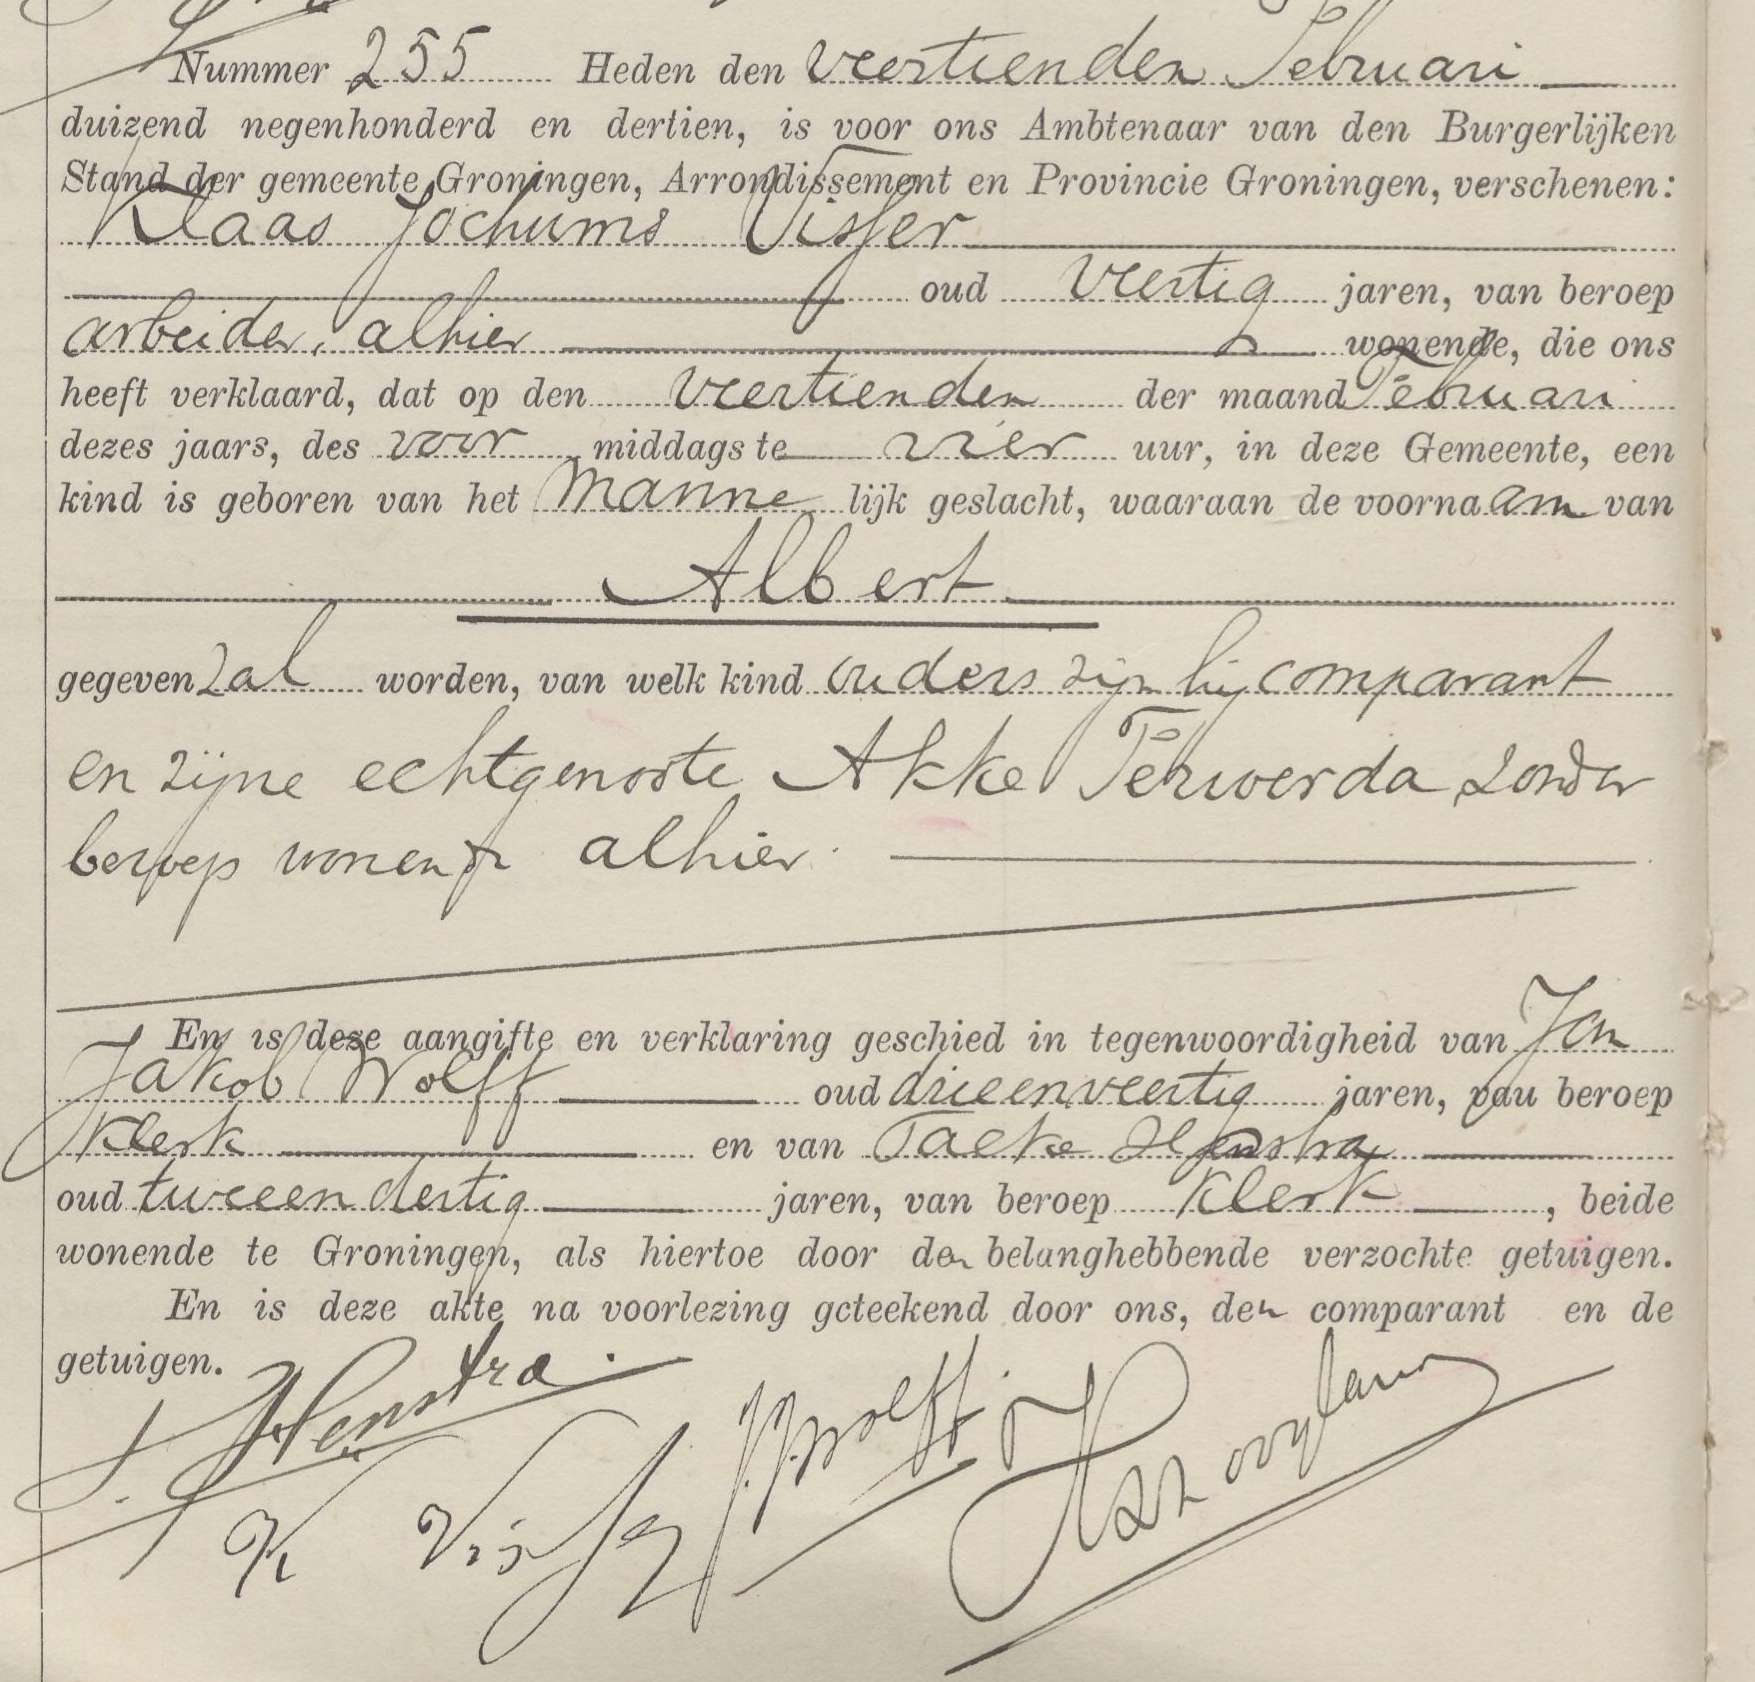 Nummer 255 Heden den veertienden Februari
duizend negenhonderd en dertien, is voor ons Ambtenaar van den Burgerlijken
Stand der gemeente Groningen, Arrondissement en Provincie Groningen, verschenen:
Klaas Jochums Visser
oud veertig jaren, van beroep
arbeider, alhier wonende, die ons
heeft verklaard, dat op den veertienden der maand Februari
dezes jaars, des voor middags te vier uur, in deze Gemeente, een
kind is geboren van het Manne lijk geslacht, waaraan de voorna am van
Albert
gegeven zal worden, van welk kind ouders zijn hij comparant
en zijne echtgenoote Akke Ferwerda zonder
beroep wonende alhier.
En is deze aangifte en verklaring geschied in tegenwoordigheid van Jan
Jakob Wolff oud drieenveertig jaren, van beroep
Klerk en van Taeke
oud tweeendertig jaren, van beroep Klerk, beide
wonende te Groningen, als hiertoe door den belanghebbende verzochte getuigen.
En is deze akte na voorlezing geteekend door ons, den comparant en de
getuigen.
K Visser J.J. Wolff